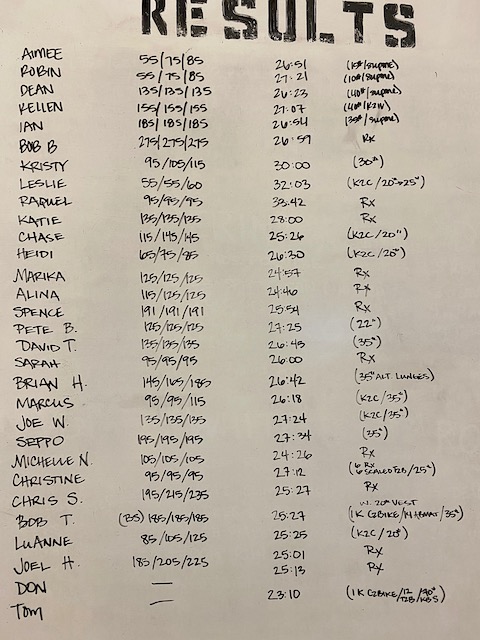 RESULTS
AIMEE 55/75/85 26:51 (15#/supine)
ROBIN 55/75/85 27:21 (10#/supine)
DEAN 135/135/135 26:23 (40#/supine)
KELLEN 155/155/155 27:07
IAN 185/185/185 26:54 (35#/supine)
BOB B 275/275/275 26:59 Rx
KRISTY 95/105/115 30:00 (30#)
LESLIE 55/55/60 32:03 (K2C/20#→25#)
RAQUEL 95/95/95 33:42 Rx
KATIE 135/135/135 28:00 Rx
CHASE 115/145/145 25:26 (K2C/20")
HEIDI 65/75/85 26:30 (K2C/20#)
MARIKA 125/125/125 24:57 Rx
ALINA 115/125/125 24:46 Rx
SPENCE 191/191/191 25:54 Rx
PETE B. 125/125/125 27:25 (22#)
DAVID T. 135/135/135 26:45 (35#)
SARAH 95/95/95 26:00 Rx
BRIAN H. 145/165/185 26:42 (35# ALT. LUNGES)
MARCUS 95/95/115 26:18 (K2C/35#)
JOE W. 135/135/135 27:24 (K2C/35#)
SEPPO 195/195/195 27:34 (35#)
MICHELLE N. 105/105/105 24:26 Rx
CHRISTINE 95/95/95 27:12 (6 Rx 6 SCALED T2B/25#)
CHRIS S. 195/215/235 25:27 Rx
W. 20# VEST
BOB T. (BS) 185/185/185 25:27 (1K C2BIKE/14 ABMAT/35#)
LUANNE 85/105/125 25:25 (K2C/20#)
JOEL H. 185/205/225 25:01 Rx
DON — 25:13 Rx
TOM — 23:10 (1K C2BIKE/12 T2B/90# KBS)